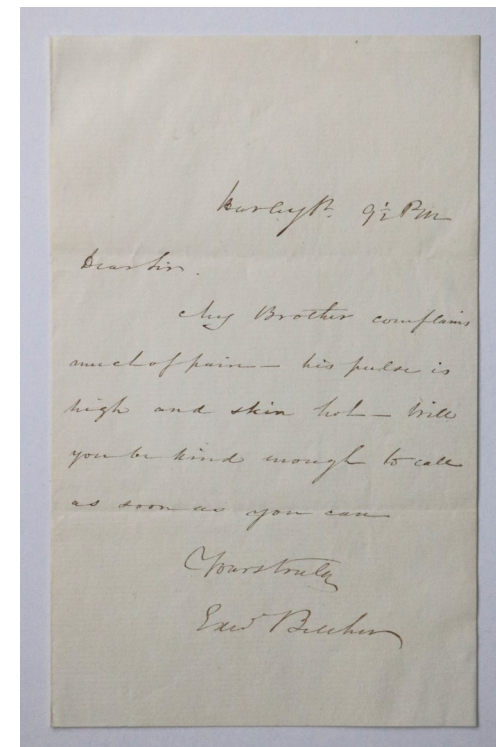 Harley St. 9½ P.M.
Dear Sir.
My Brother complains
much of pain – his pulse is
high and skin hot – Will
you be kind enough to call
as soon as you can
Yours truly
Edwd Belcher